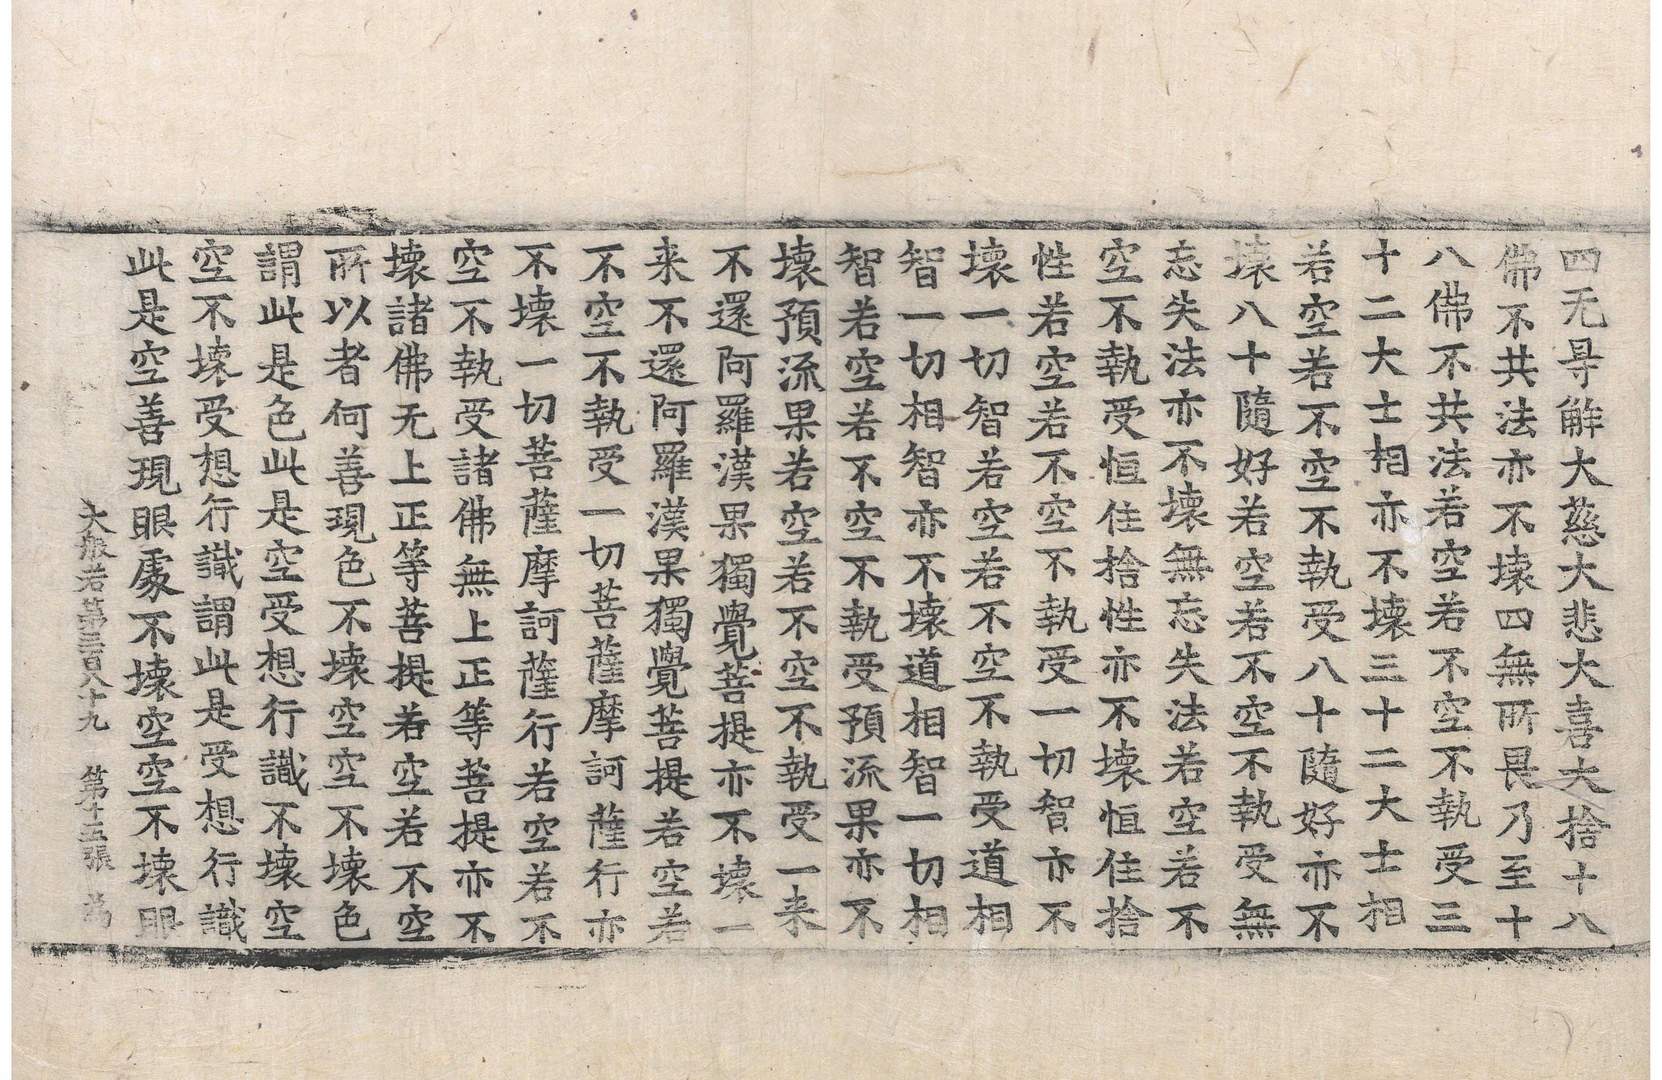 四无㝵解大慈大悲大喜大捨十八
佛不共法亦不壞四無所畏乃至十
八佛不共法若空若不空不執受三
十二大士相亦不壞三十二大士相
若空若不空不執受八十隨好亦不
壞八十隨好若空若不空不執受無
忘失法亦不壞無忘失法若空若不
空不執受恒住捨性亦不壞恒住捨
性若空若不空不執受一切智亦不
壞一切智若空若不空不執受道相
智一切相智亦不壞道相智一切相
智若空若不空不執受預流果亦不
壞預流果若空若不空不執受一来
不還阿羅漢果獨覺菩提亦不壞一
来不還阿羅漢果獨覺菩提若空若
不空不執受一切菩薩摩訶薩行亦
不壞一切菩薩摩訶薩行若空若不
空不執受諸佛無上正等菩提亦不
壞諸佛无上正等菩提若空若不空
所以者何善現色不壞空空不壞色
謂此是色此是空受想行識不壞空
空不壞受想行識謂此是受想行識
此是空善現眼處不壞空空不壞眼
大般若第三百八十九 第十五張 為